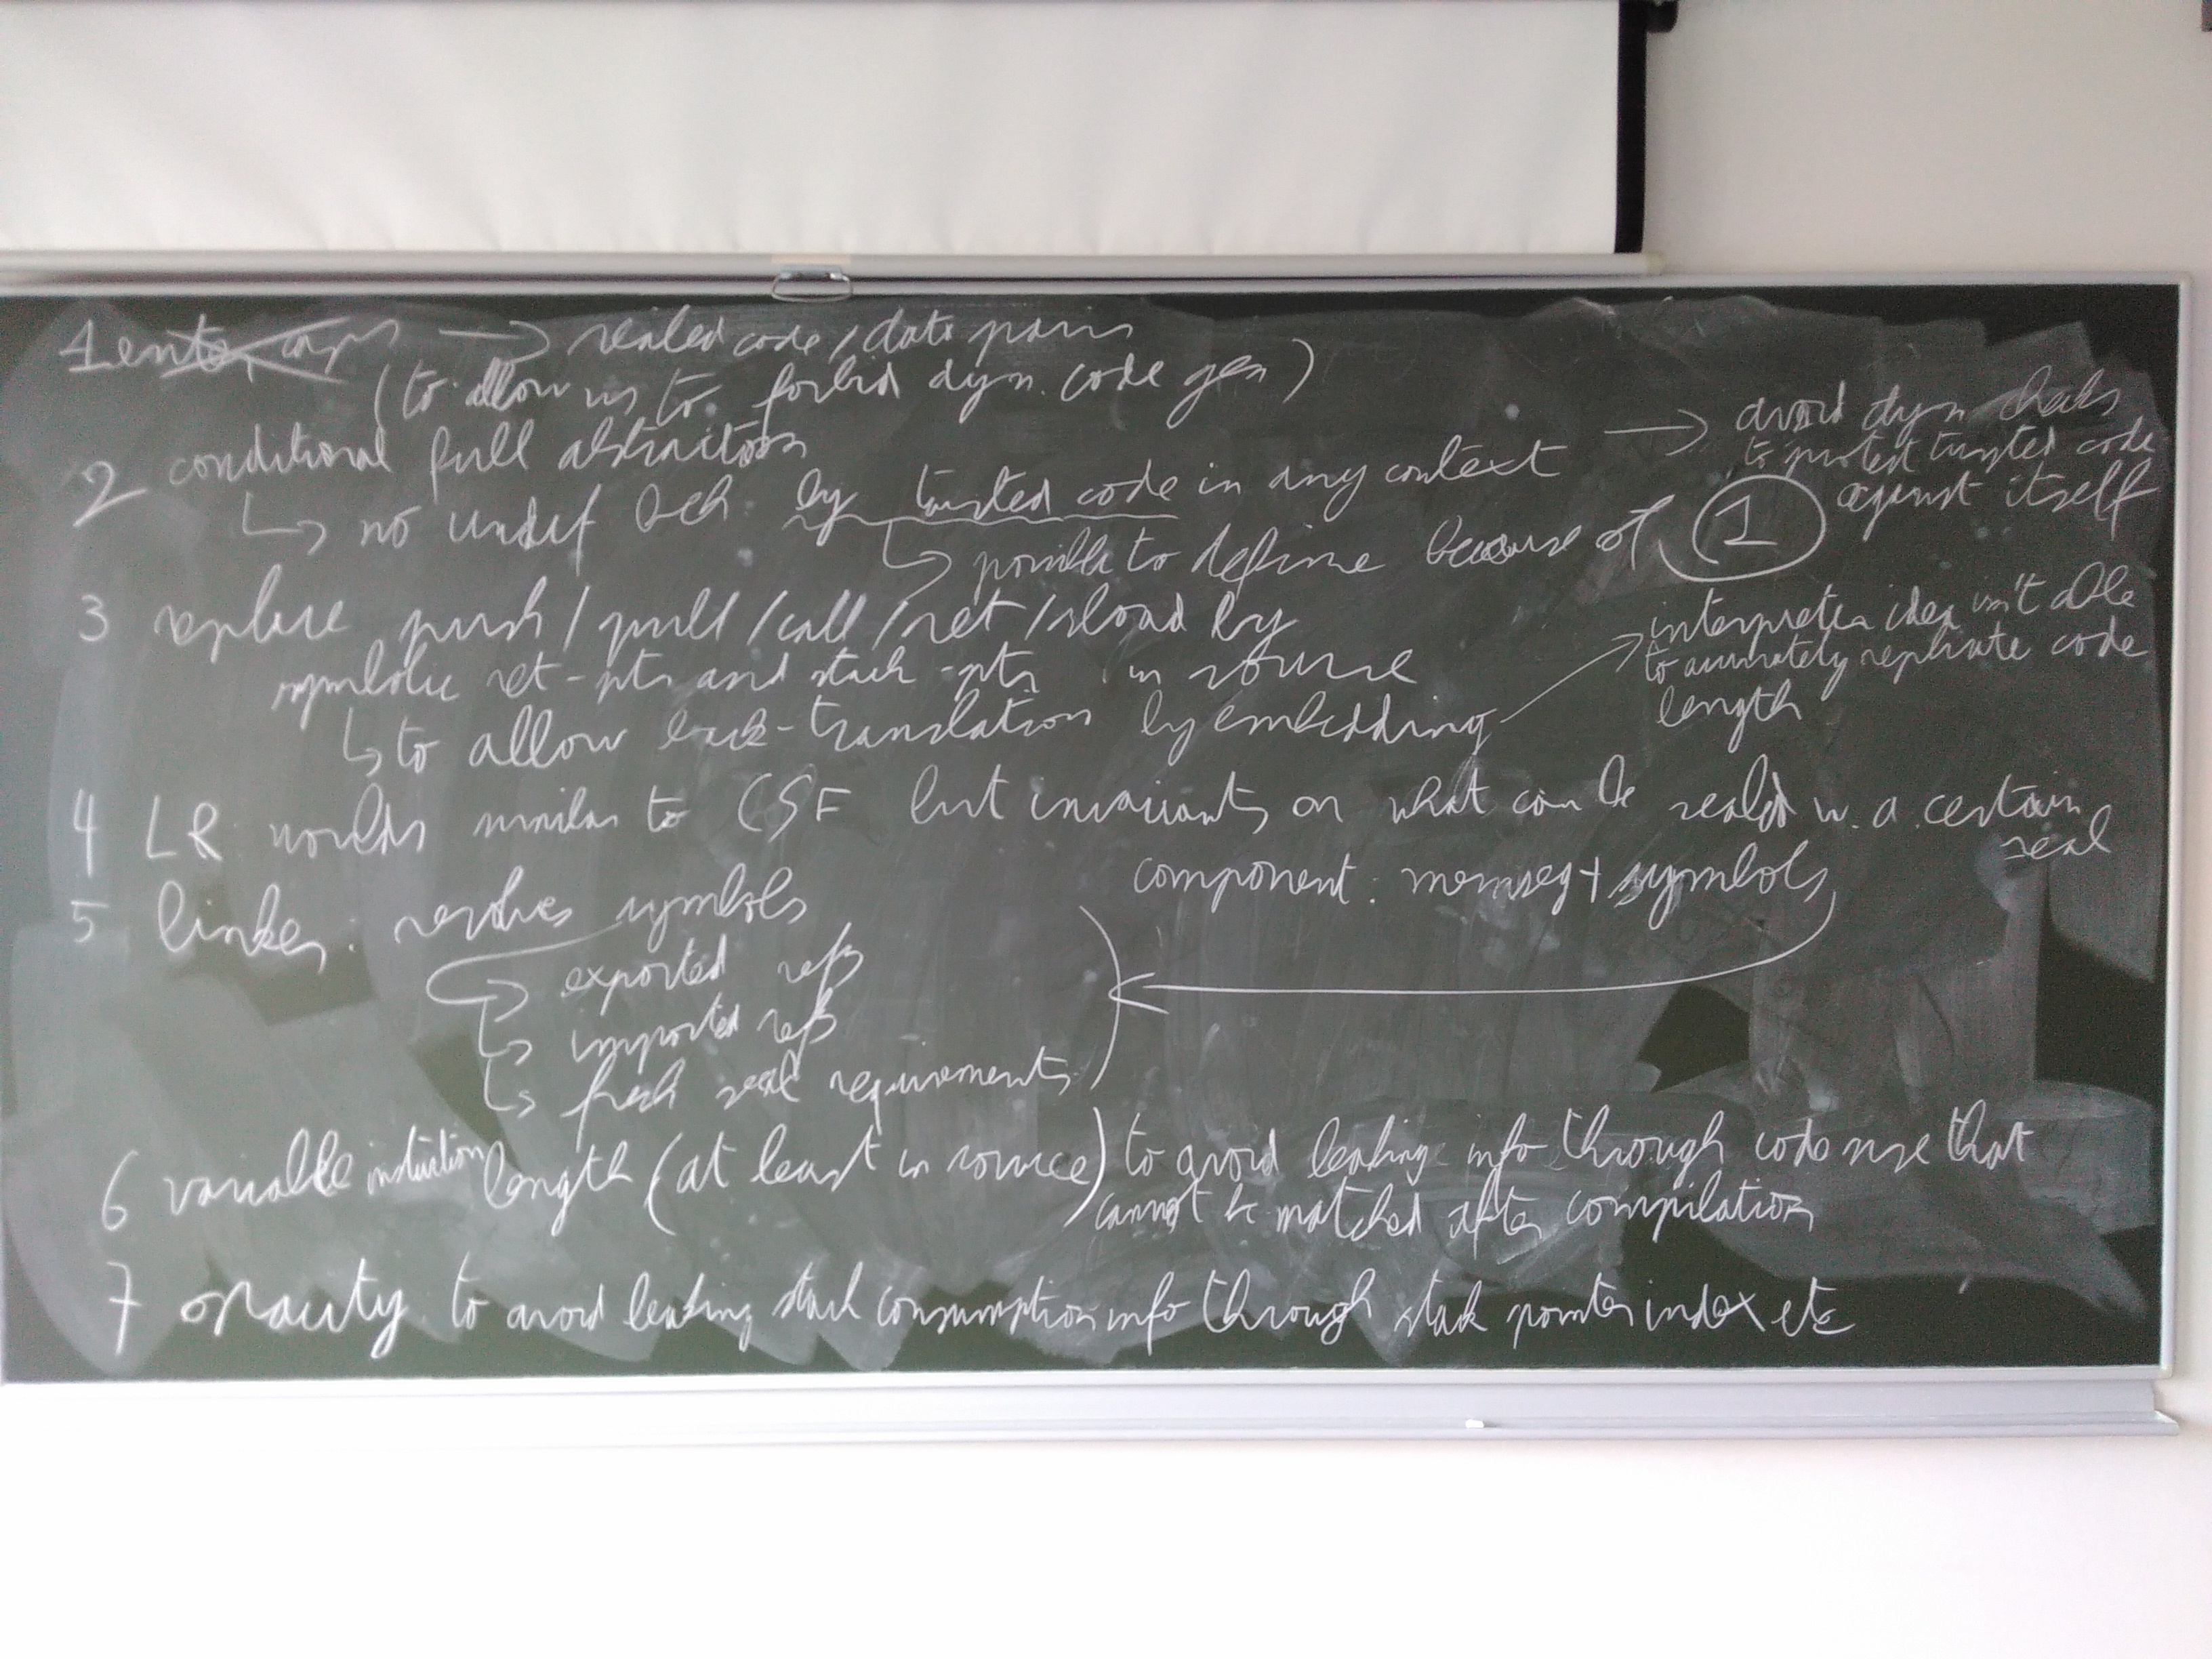 1 enter caps → sealed code/data pairs
(to allow us to forbid dyn. code gen)
2 conditional full abstraction
↳ no undef beh. by trusted code in any context → avoid dyn checks
to protect trusted code
against itself
↳ possible to define because of ①
3 replace push/pull/call/ret/sload by
symbolic ret-ptrs and stack-ptrs in source
↳ to allow back-translation by embedding → interpreter idea isn't able
to accurately replicate code
length
4 LR worlds similar to CSF but invariants on what can be sealed w. a certain
seal
5 linker: resolves symbols
component: memseg + symbols
↳ exported refs
↳ imported refs
↳ fresh seal requirements
6 variable instruction length (at least in source) to avoid leaking info through code size that
cannot be matched after compilation
7 opacity to avoid leaking stack consumption info through stack pointer index etc